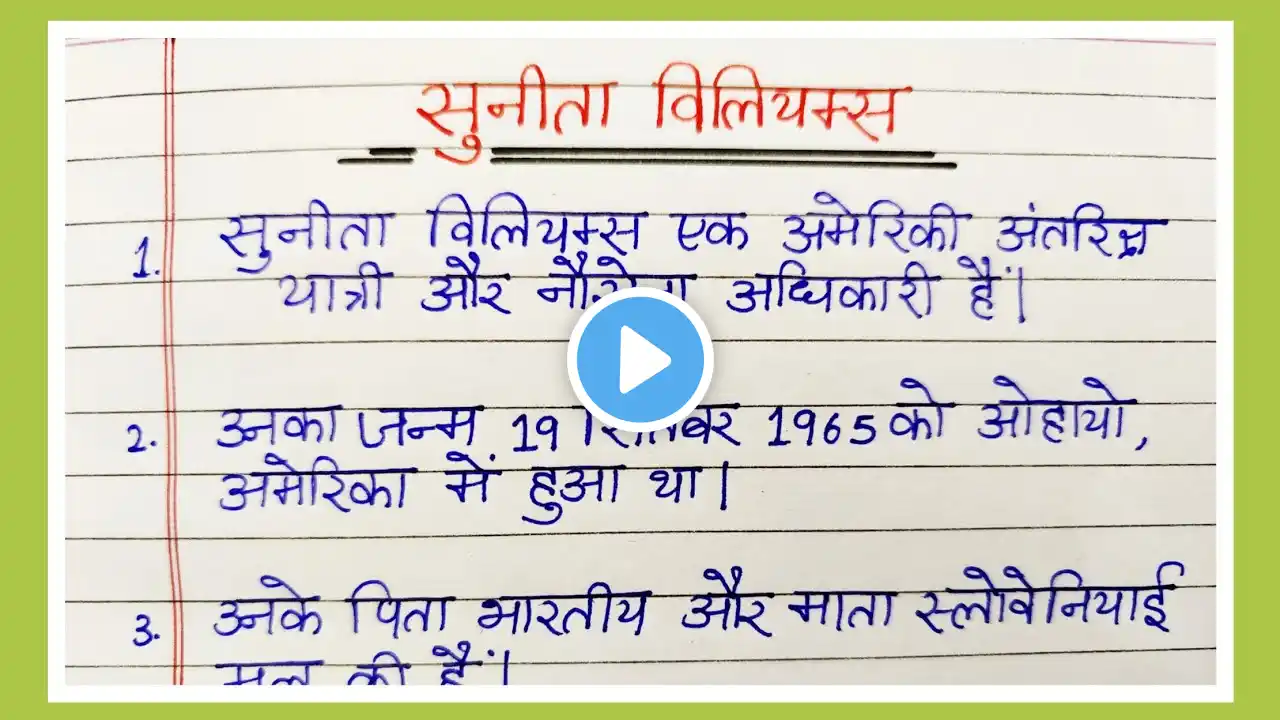 सुनीता विलियम्स
1. सुनीता विलियम्स एक अमेरिकी अंतरिक्ष
यात्री और नौसेना अधिकारी हैं।
2. उनका जन्म 19 1965 को ओहायो,
अमेरिका में हुआ था।
3. उनके पिता भारतीय और माता स्लोवेनियाई
मूल की हैं।